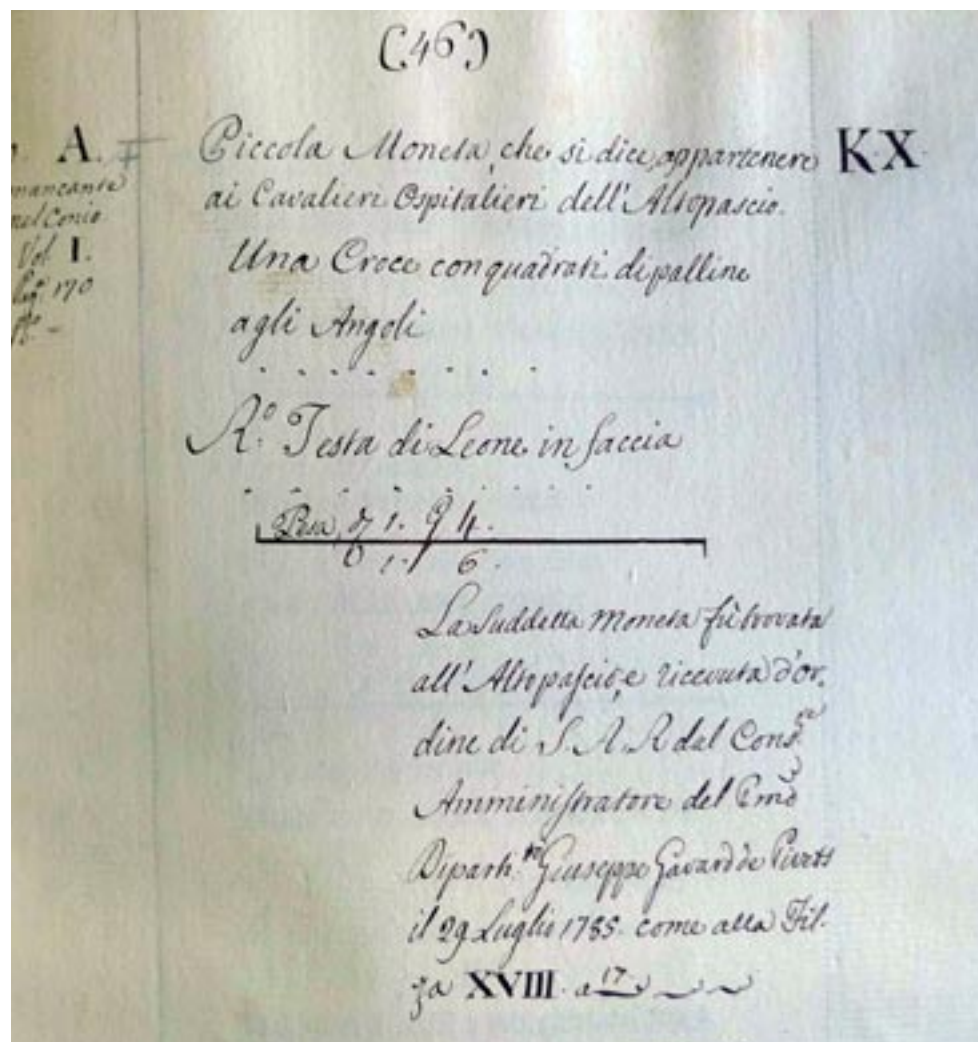 (46)
A.
mancante
nel Conio
Vol. I.
pag. 170
Piccola Moneta, che si dice appartenere
KX
ai Cavalieri Ospitalieri dell'Altopascio.
Una Croce con quadrati di palline
agli Angoli
. . . . . . . . .
R.º Testa di Leone in faccia
. . . . . . . .
Pesa, 1. 4.
1. 6.
La suddetta Moneta fù trovata
all'Altopascio, e ricevuta d'or,
dine di S. A. R dal Cons.re
Amministratore del
Diparti.to Giuseppe Gavard de
il 29 Luglio 1785. come alla Fil-
za XVIII. a 17